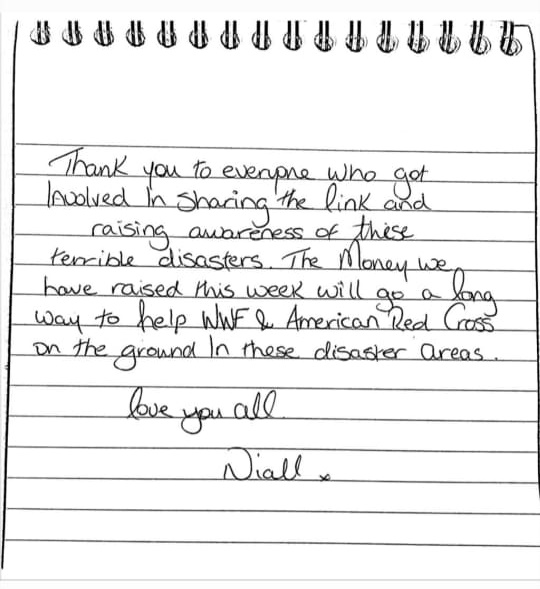 Thank you to everyone who got
Involved In sharing the link and
raising awareness of these
terrible disasters. The Money we
have raised this week will go a long
way to help WWF & American Red Cross
on the ground In these disaster areas.
love you all
Niall x